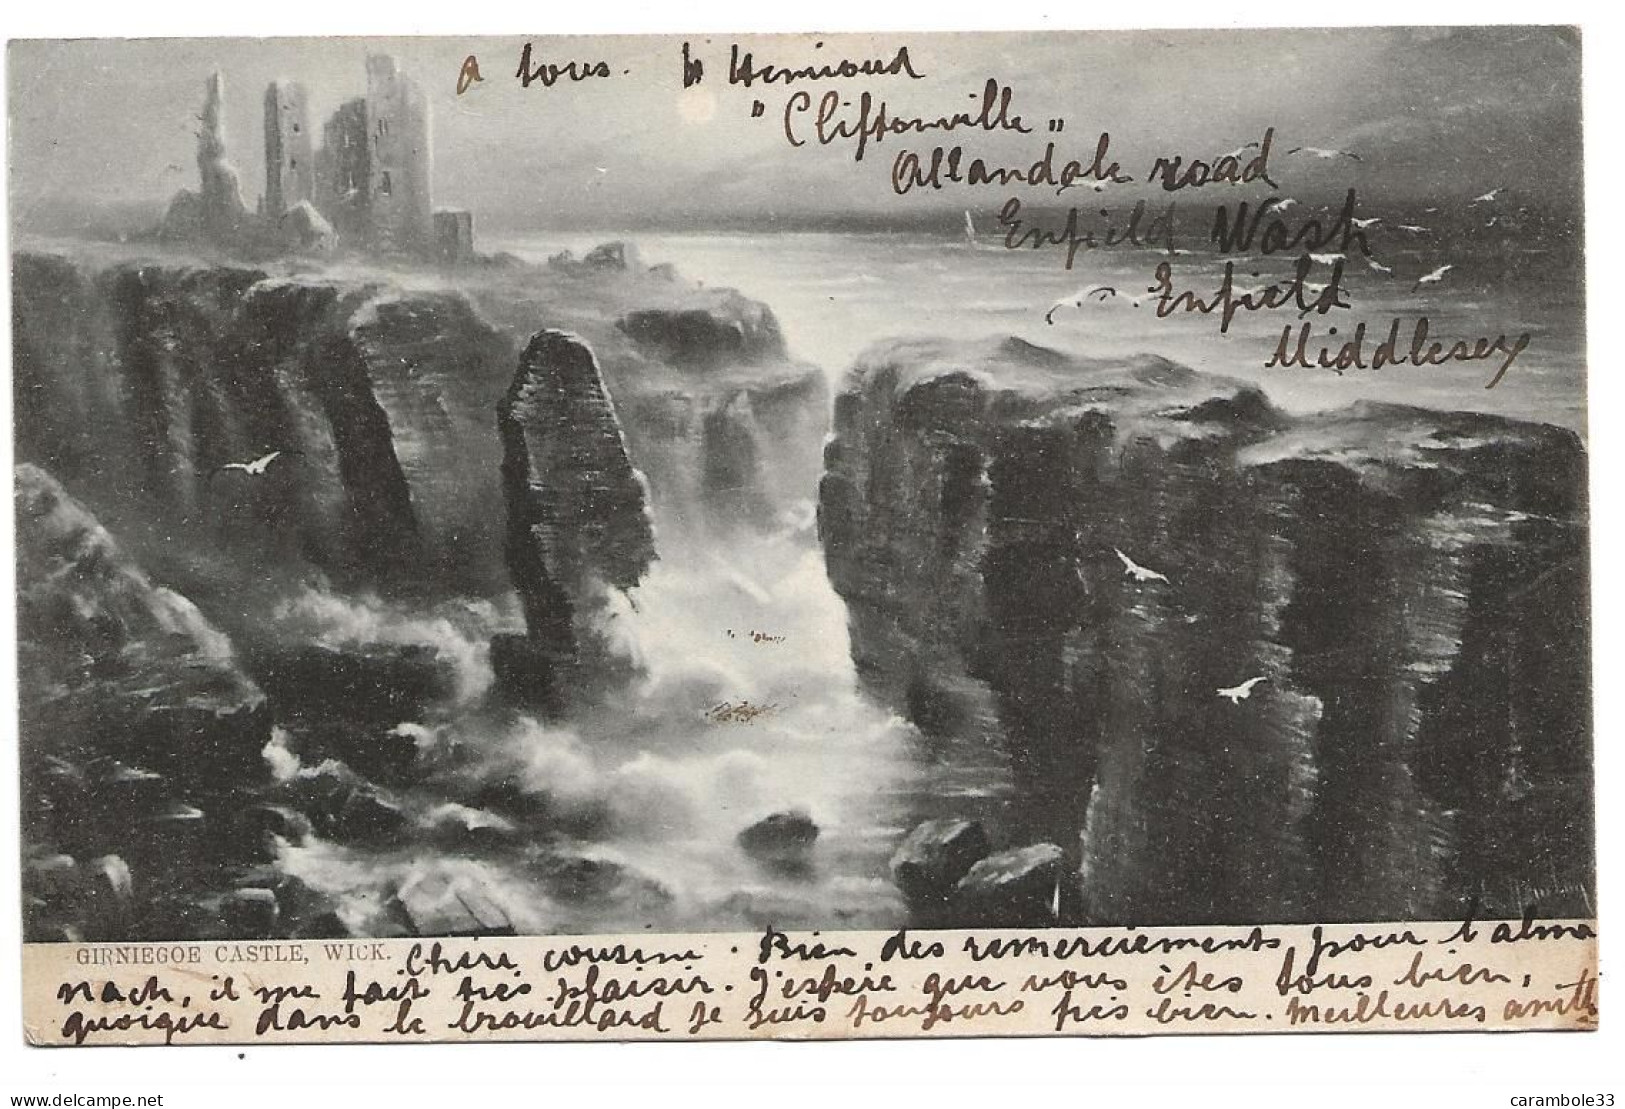 A tous. H Henrioud
"Cliftonville"
Allandale road
Enfield Wash
Enfield
Middlesex
GIRNIEGOE CASTLE, WICK. Chère cousine. Bien des remerciements pour l'alma
nach, il me fait très plaisir. J'espère que vous êtes tous bien,
quoique dans le brouillard je suis toujours très bien. Meilleures amitiés
delcampe.net
carambole33